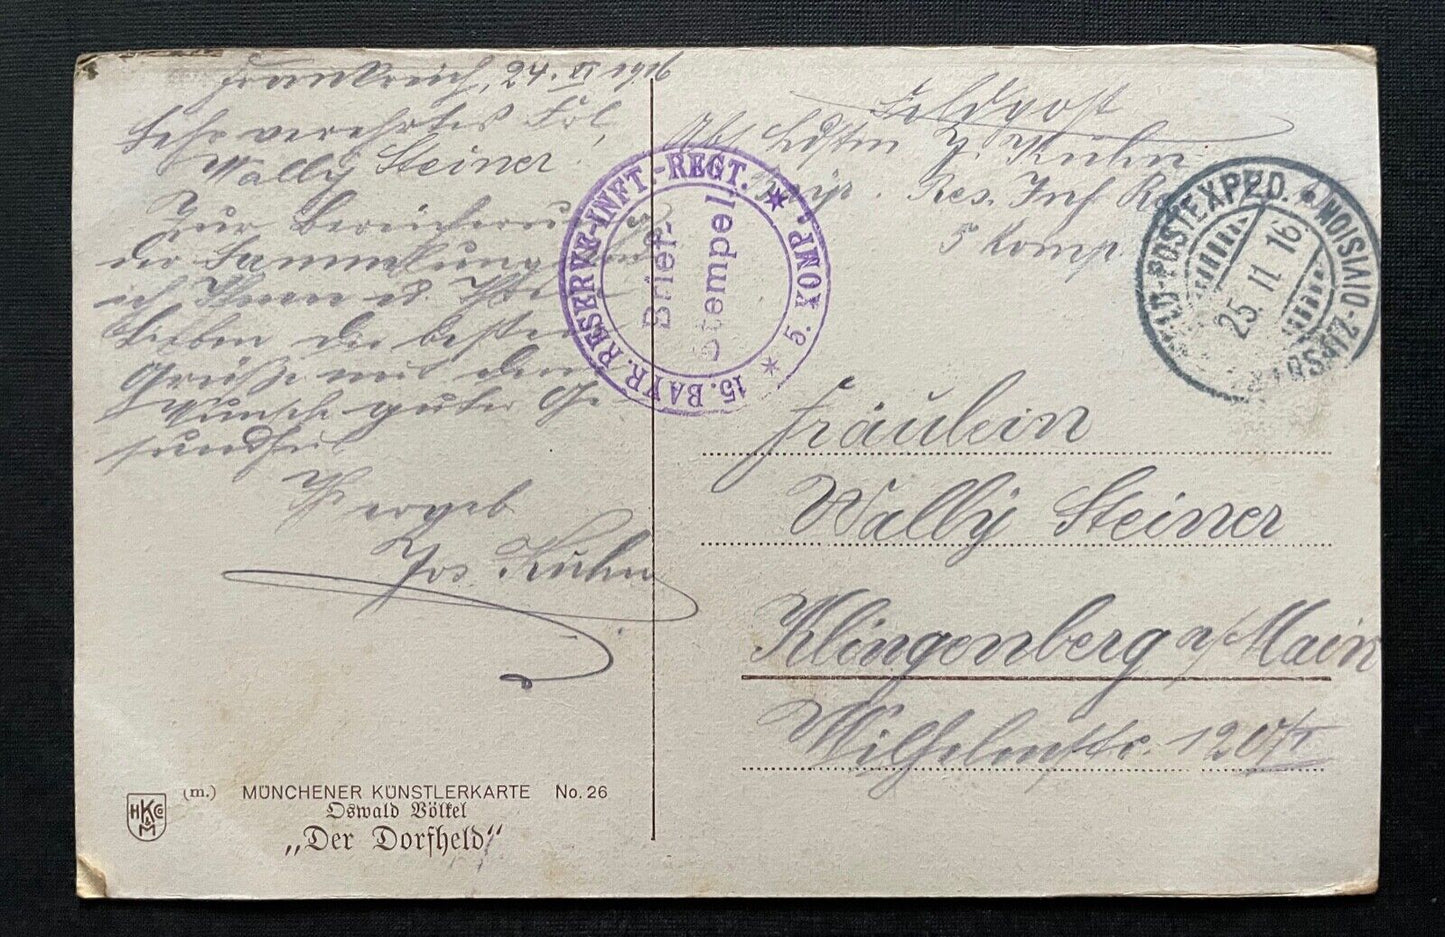 Frankreich, 24. XI 1916
Sehr verehrtes Frl.
Wally Steiner!
Zur Bereicherung
der Sammlung
ich Ihnen u. Ihren
Lieben die besten
Grüße mit dem
Wunsch guter Ge-
sundheit
Ihr ergeb
Jos. Kuhn
Feldpost
Abs. Ldstm J. Kuhn
Bayr. Res. Inf. R
5 Komp.
15. BAYR. RESERVE-INFT.-REGT. * 5. KOMP. *
Brief-
Stempel
FELD-POSTEXPED. * DIVISION *
25. 11. 16
Fräulein
Wally Steiner
Klingenberg a/Main
Wilhelmstr. 120
(m.) MÜNCHENER KÜNSTLERKARTE No. 26
Oswald Völkel
„Der Dorfheld"
HKCo
&
M